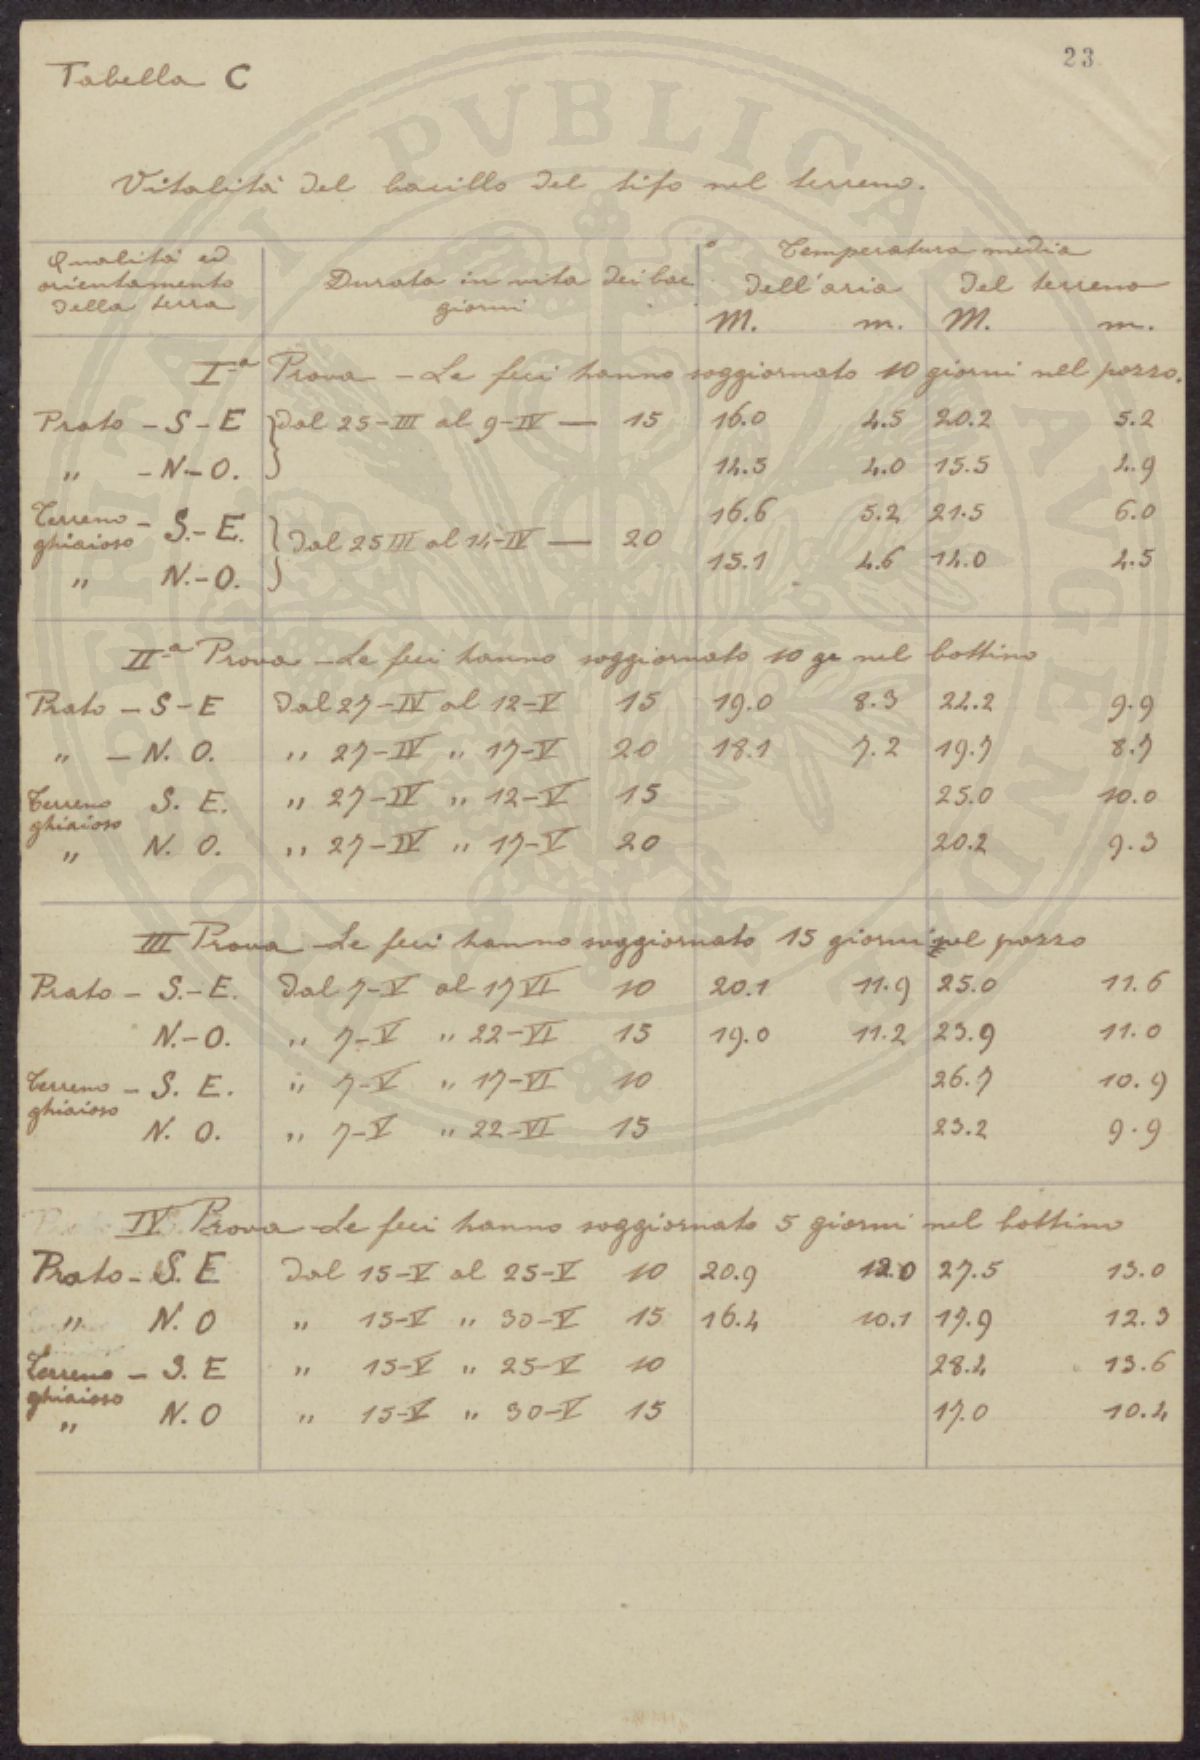 23
Tabella C
Vitalità del bacillo del tifo nel terreno.
Qualità ed orientamento della terra
Durata in vita dei bac. giorni
Temperatura media
dell'aria del terreno
M. m. M. m.
Iª Prova - Le feci hanno soggiornato 10 giorni nel pozzo.
Prato - S - E } dal 25-III al 9-IV — 15 16.0 4.5 20.2 5.2
" - N - O. 14.5 4.0 15.5 4.9
Terreno ghiaioso - S. - E. } dal 25 III al 14-IV — 20 16.6 5.2 21.5 6.0
" N. - O. 15.1 4.6 14.0 4.5
IIª Prova - Le feci hanno soggiornato 10 gr nel bottino
Prato - S - E dal 27-IV al 12-V 15 19.0 8.3 24.2 9.9
" - N. O. " 27-IV " 17-V 20 18.1 7.2 19.7 8.7
Terreno ghiaioso S. E. " 27-IV " 12-V 15 25.0 10.0
" N. O. " 27-IV " 17-V 20 20.2 9.3
III Prova - Le feci hanno soggiornato 15 giorni nel pozzo
Prato - S. - E. dal 7-V al 17 VI 10 20.1 11.9 25.0 11.6
N. - O. " 7-V " 22-VI 15 19.0 11.2 23.9 11.0
Terreno ghiaioso - S. E. " 7-V " 17-VI 10 26.7 10.9
N. O. " 7-V " 22-VI 15 23.2 9.9
IV. Prova - Le feci hanno soggiornato 5 giorni nel bottino
Prato - S. E dal 15-V al 25-V 10 20.9 12.0 27.5 13.0
" N. O " 15-V " 30-V 15 16.4 10.1 17.9 12.3
Terreno ghiaioso - S. E " 15-V " 25-V 10 28.4 13.6
" N. O " 15-V " 30-V 15 17.0 10.4